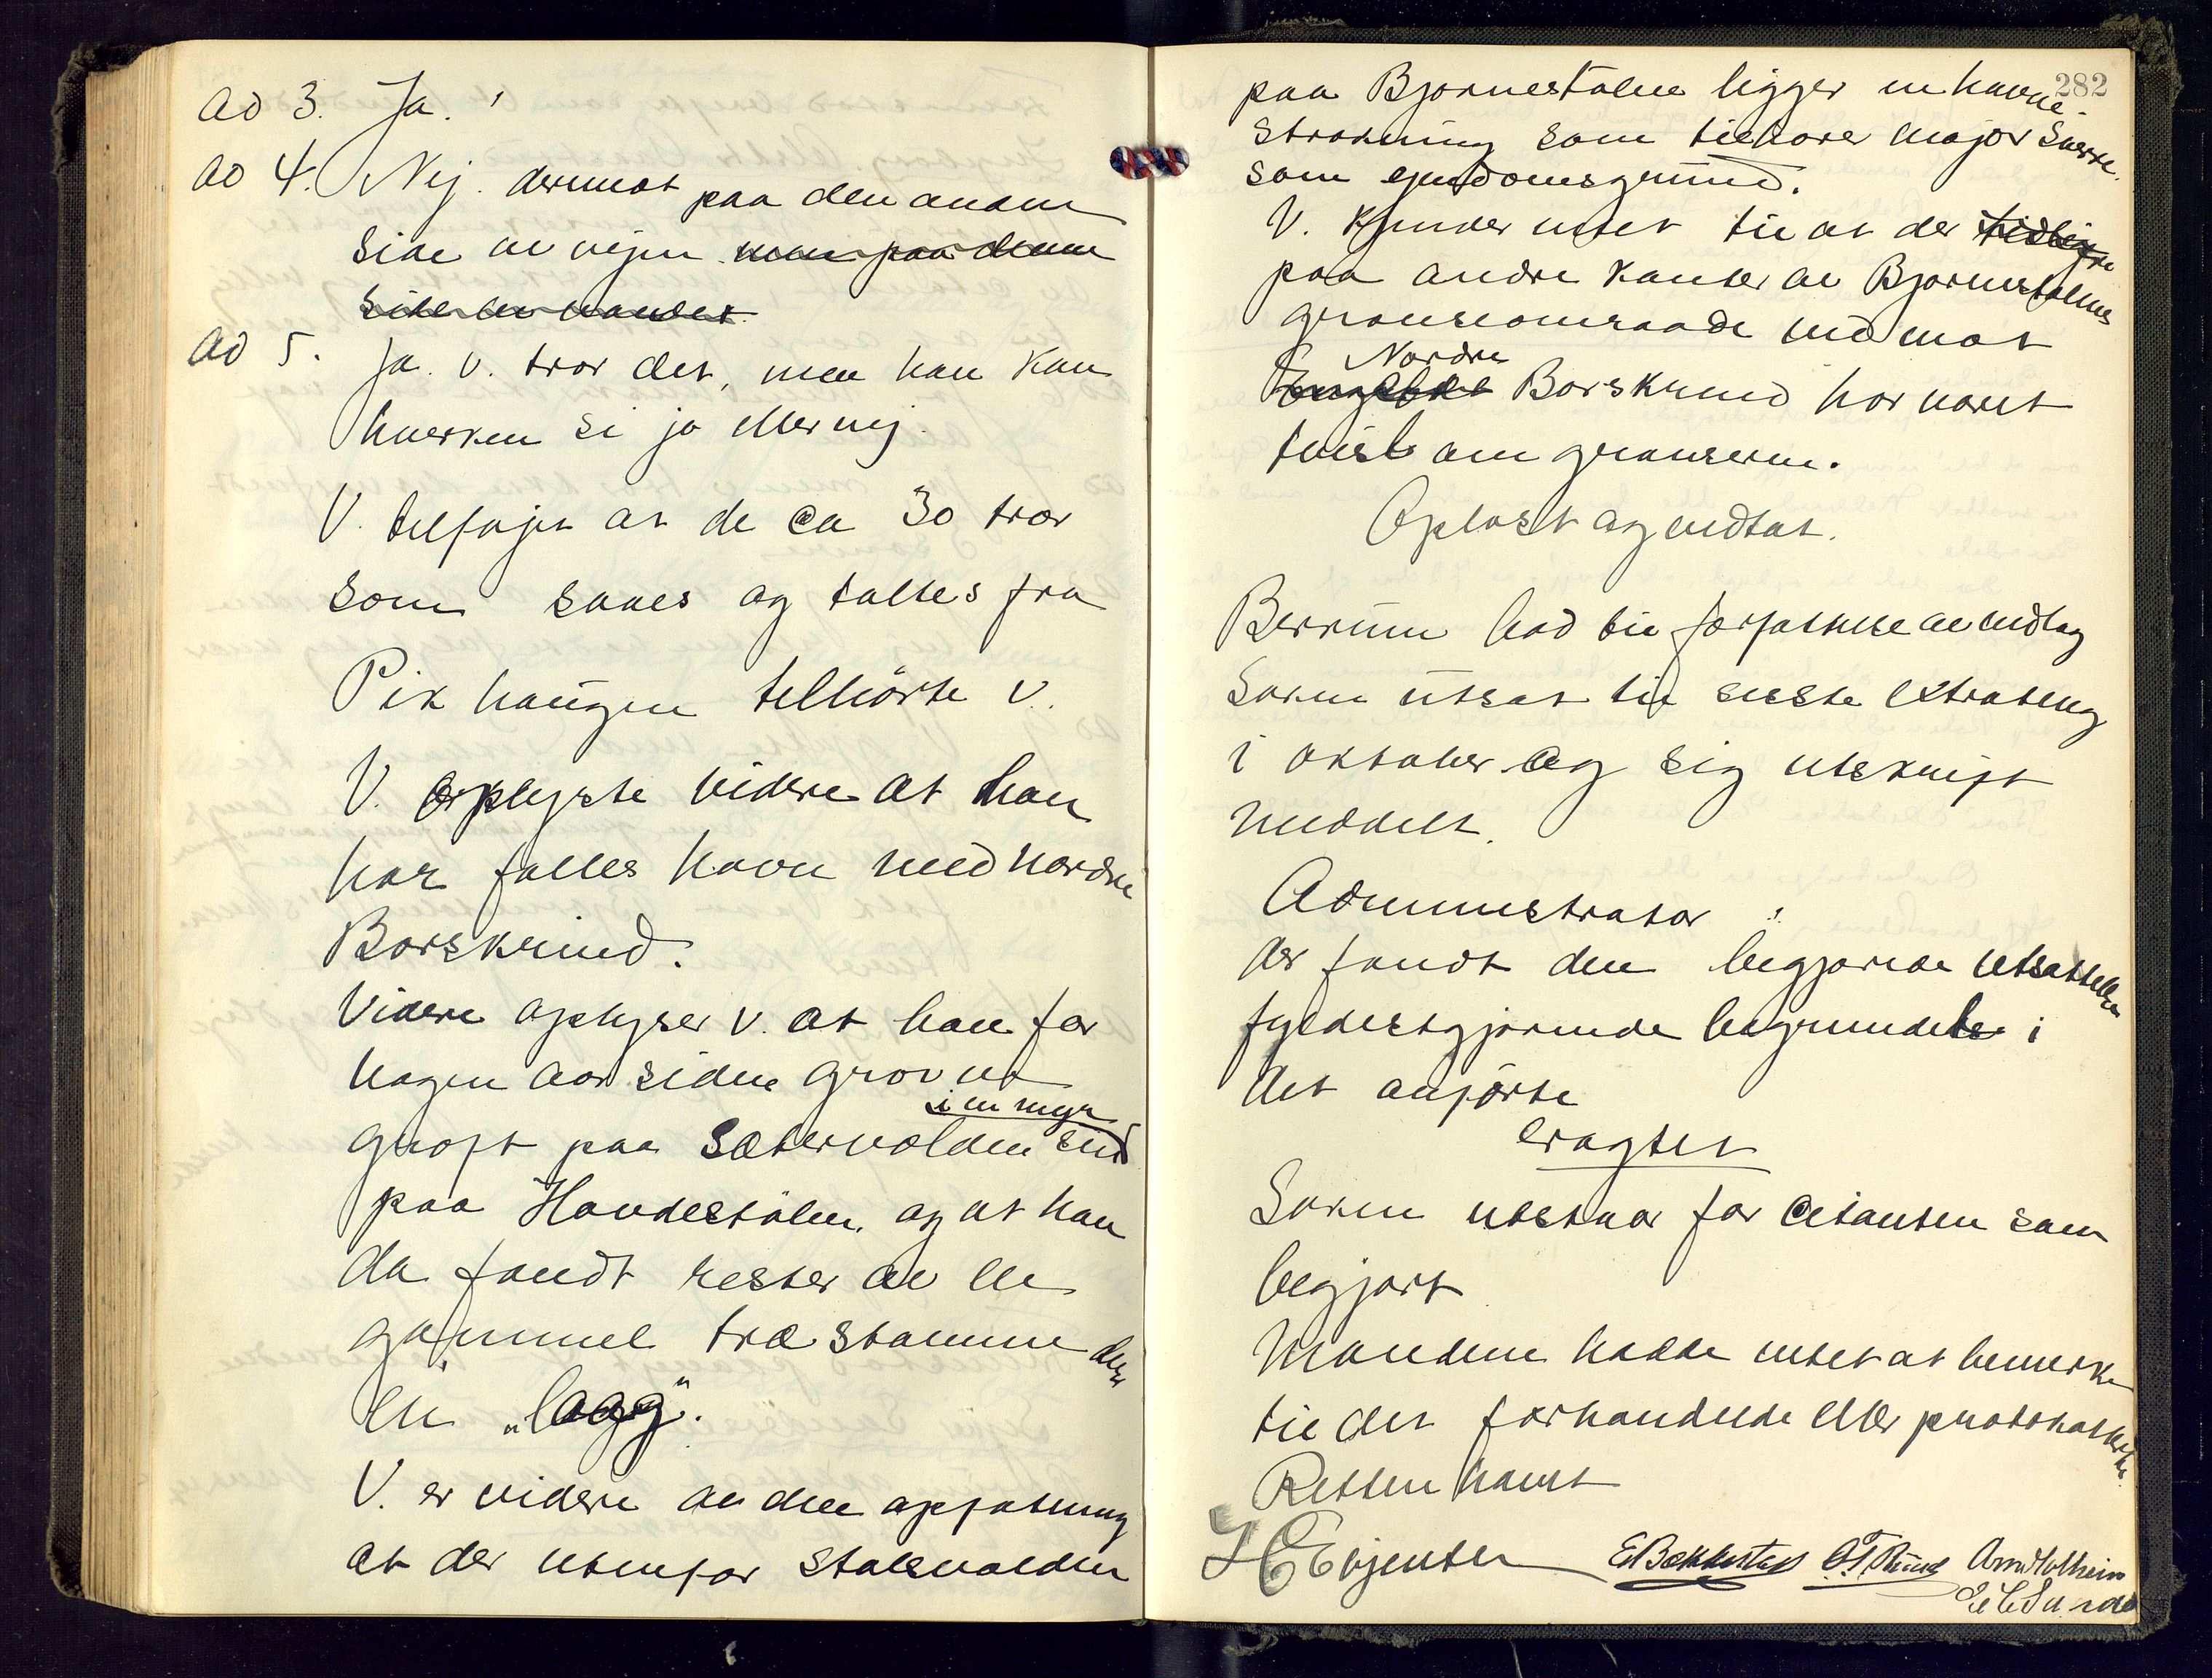 ad 3. Ja.
ad 4. Nej. derimot paa den anden
side av vejen men paa denne
side av vandet
ad 5. Ja. V. tror det, men han kan
hverken si ja eller nej.
V. tilføjet at de ca 30 trær
som saaes og taltes fra
Pikhaugen tilhørte V.
V. oplyste videre at han
har fælles havn med nordre
Borskrud.
Videre oplyser V. at han for
nogen aar siden grov en
i en myr
grøft paa Sætervolden ind
paa Haavdestølen, og at han
da fandt rester av en
gammel træstamme
en "lagg".
V. er videre av den opfatning
at der utenfor Stølsvolden
282
paa Bjørnestølen ligger en havne
strækning som tilhører Major Sverre
som ejendomsgrund.
V. kjender intet til at der tidligere
paa andre kanter av Bjørnestølens
grænseomraade ind mot
Nordre
Borskrud har været
tvist om grænserne.
Oplæst og vedtat.
Berrum bad til forfattelse av indlæg
Saken utsat til siste extrateng
i oktober og sig utskrift
meddelt.
Administrator
der fandt den begjærede utsættelse
fyldestgjørende begrundet i
det anførte
eragtet
Saken utstaar for Citanten som
begjært
Mændene hadde intet at bemerke
til det forhandlede eller protokollerte
Retten hævet
E Bækkestad O. T. Ruud